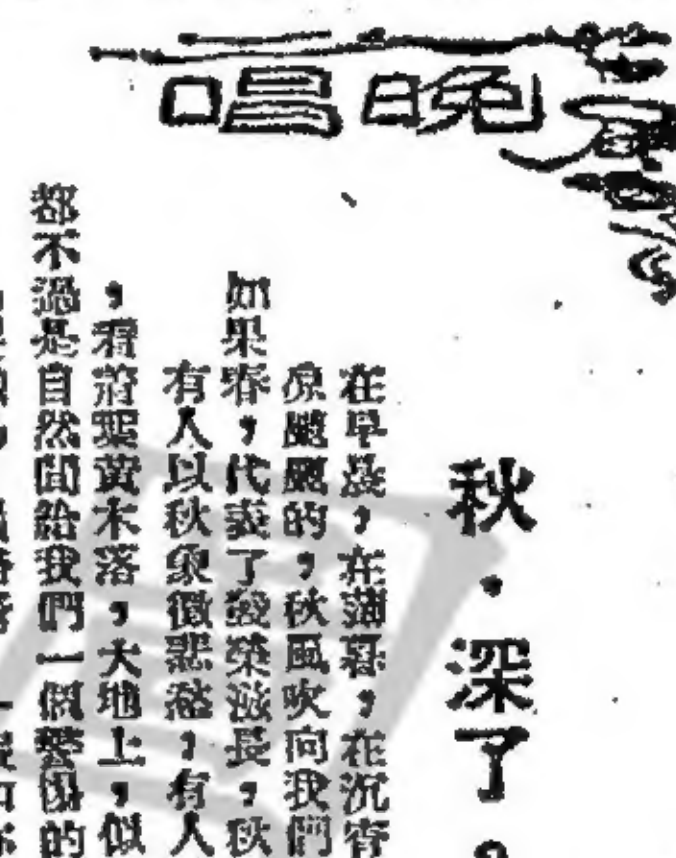 晚唱
秋·深了。
在早晨,在薄暮,在沉寂
凉颼颼的,秋風吹向我們
如果春,代表了發榮滋長,秋
有人以秋象徵悲愁,有人
,看將葉黃木落,大地上,似
都不過是自然間給我們一個警惕的